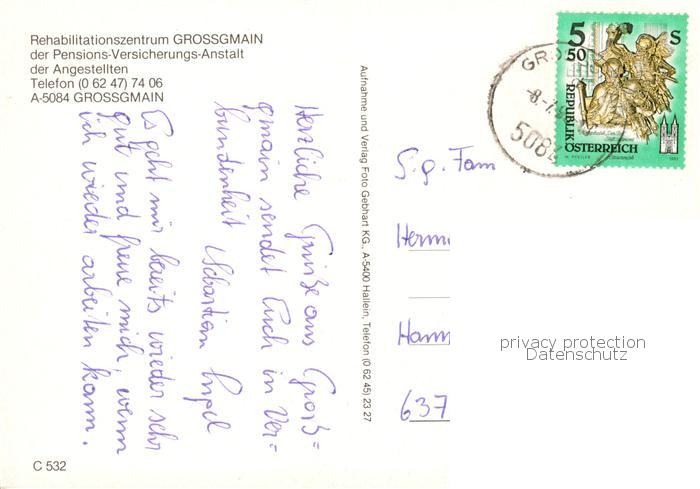 Rehabilitationszentrum GROSSGMAIN
der Pensions-Versicherungs-Anstalt
der Angestellten
Telefon (0 62 47) 74 06
A-5084 GROSSGMAIN
Herzliche Grüße aus Groß=
gmain sendet Euch in Ver=
bundenheit Sebastian
Es geht mir bereits wieder sehr
gut und freue mich, wenn
ich wieder arbeiten kann.
C 532
Aufnahme und Verlag Foto Gebhart KG., A-5400 Hallein, Telefon (0 62 45) 23 27
5 50 S
REPUBLIK
ÖSTERREICH
5084
S.g. Fam
Herm
Hann
637
privacy protection
Datenschutz